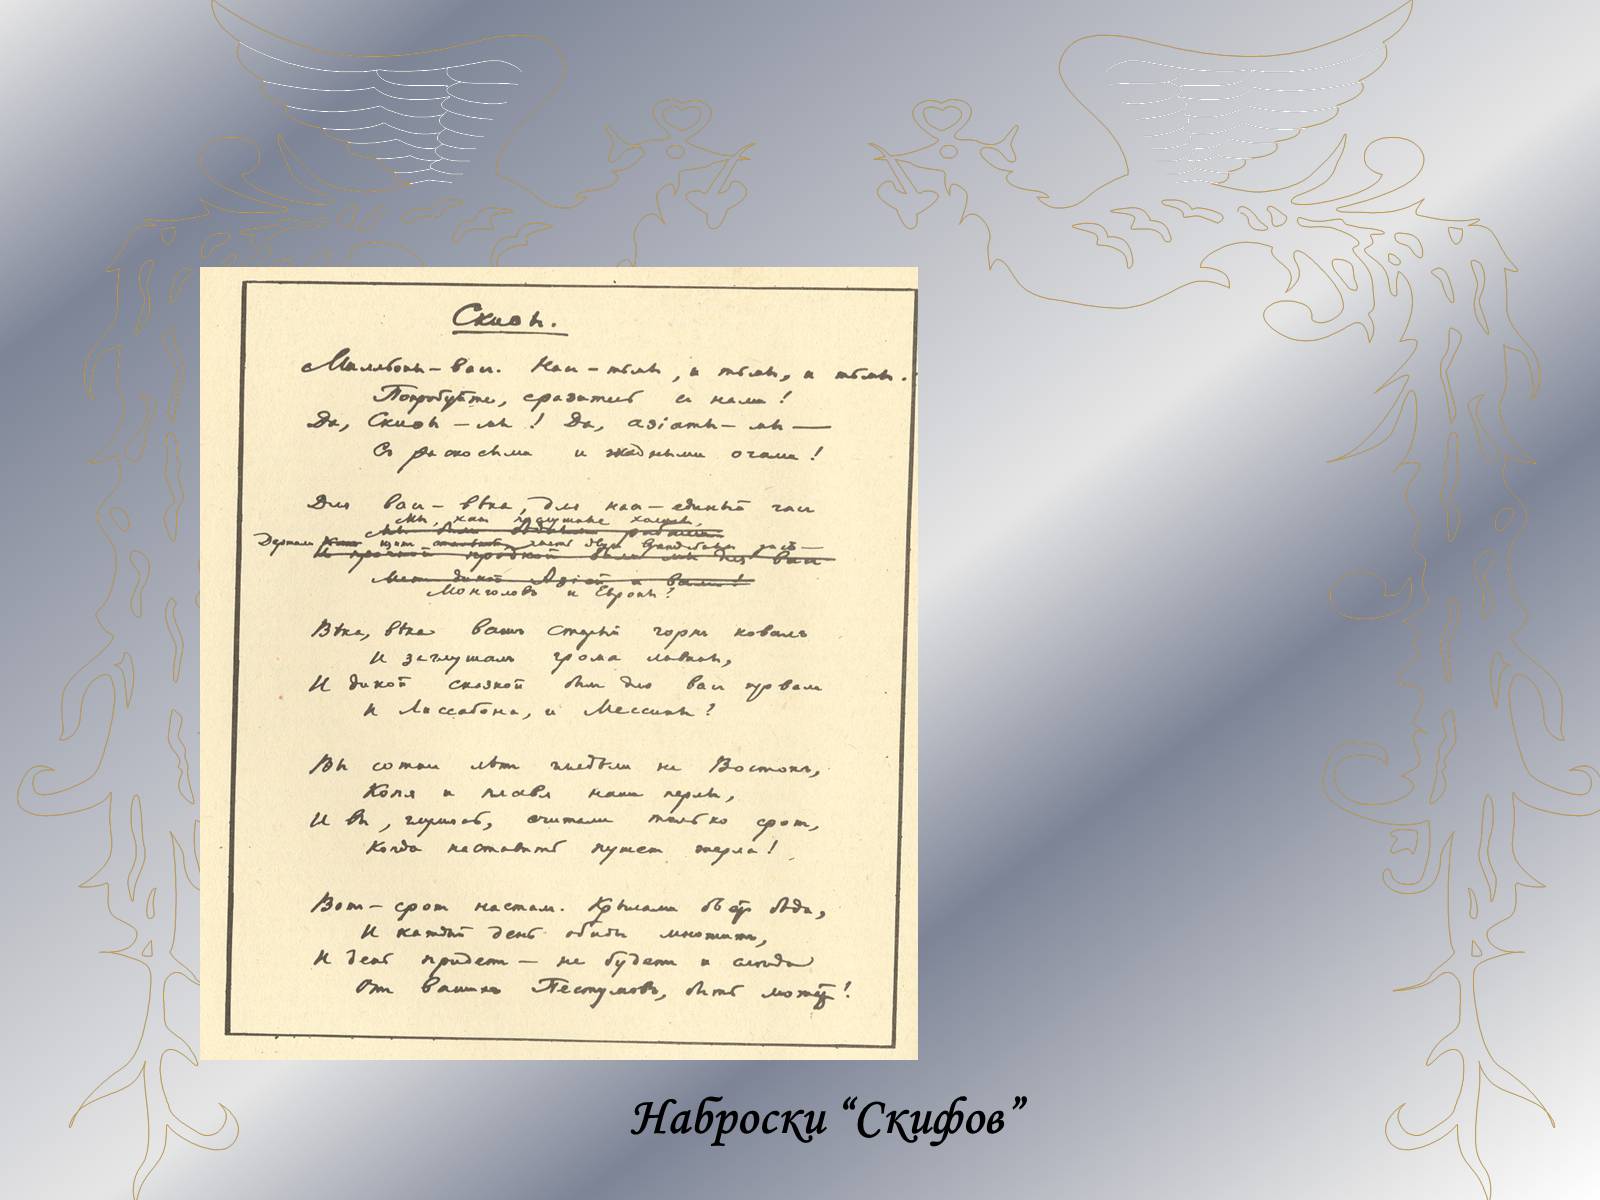 Скиѳы.
Мильоны – вас. Нас – тьмы, и тьмы, и тьмы.
Попробуйте, сразитесь с нами!
Да, Скиѳы – мы! Да, азіаты – мы —
С раскосыми и жадными очами!
Для вас – вѣка, для нас – единый час
Мы, как послушные холопы,
Держали щит двух враждебных рас —
И вас
Монголов и Европы!
Вѣка, вѣка ваш старый горн ковал
И заглушал грома лавины,
И дикой сказкой был для вас провал
И Лиссабона, и Мессины!
Вы сотни лѣт глядѣли на Восток,
Копя и плавя наши перлы,
И вы, глумясь, считали только срок,
Когда наставить пушек жерла!
Вот – срок настал. Крылами бьет бѣда,
И каждый день обиды множит,
И день придет – не будет и слѣда
От ваших Пестумов, быть может!
Наброски “Скифов”